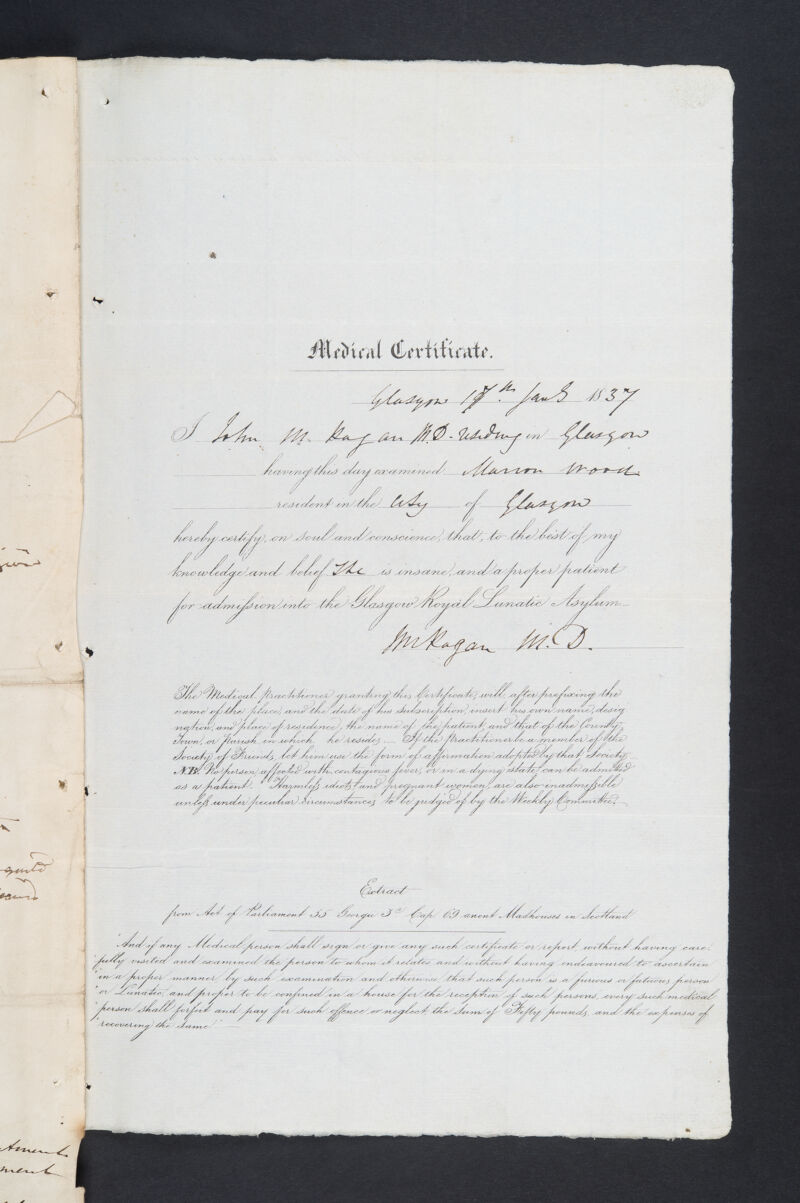 Medical Certificate.
Glasgow 17th Jany 1837
I John M. Kagan M.D. residing in Glasgow
having this day examined Marion Wood
resident in the City of Glasgow
hereby certify, on soul and conscience, that, to the best of my
knowledge and belief She is insane, and a proper patient
for admission into the Glasgow Royal Lunatic Asylum
M. D.
The Medical Practitioner granting this Certificate, will, after prefixing the
name of the place, and the date of his subscription, insert his own name, desig
nation, and place of residence, the name of the patient, and that of the County,
Town, or Parish in which he resides. — If the Practitioner be a member of the
Society of Friends, let him use the form of affirmation adopted by that Society.
N.B. No person affected with contagious fever, or in a dying state, can be admitted
as a patient. Harmless idiots, and pregnant women, are also inadmissible
unless under peculiar circumstances, to be judged of by the Weekly Committee.
Extract
from Act of Parliament 55 George 3d Cap. 69 anent Madhouses in Scotland
"And if any Medical person shall sign or give any such certificate or report without having care:
"fully visited and examined the person to whom it relates, and without having endeavoured to ascertain
"in a proper manner by such examination and otherwise, that such person is a furious or fatuous person
"or Lunatic, and proper to be confined in a house for the reception of such persons, every such medical
"person shall forfeit and pay for such offence or neglect the sum of Fifty pounds, and the expenses of
"recovering the same."